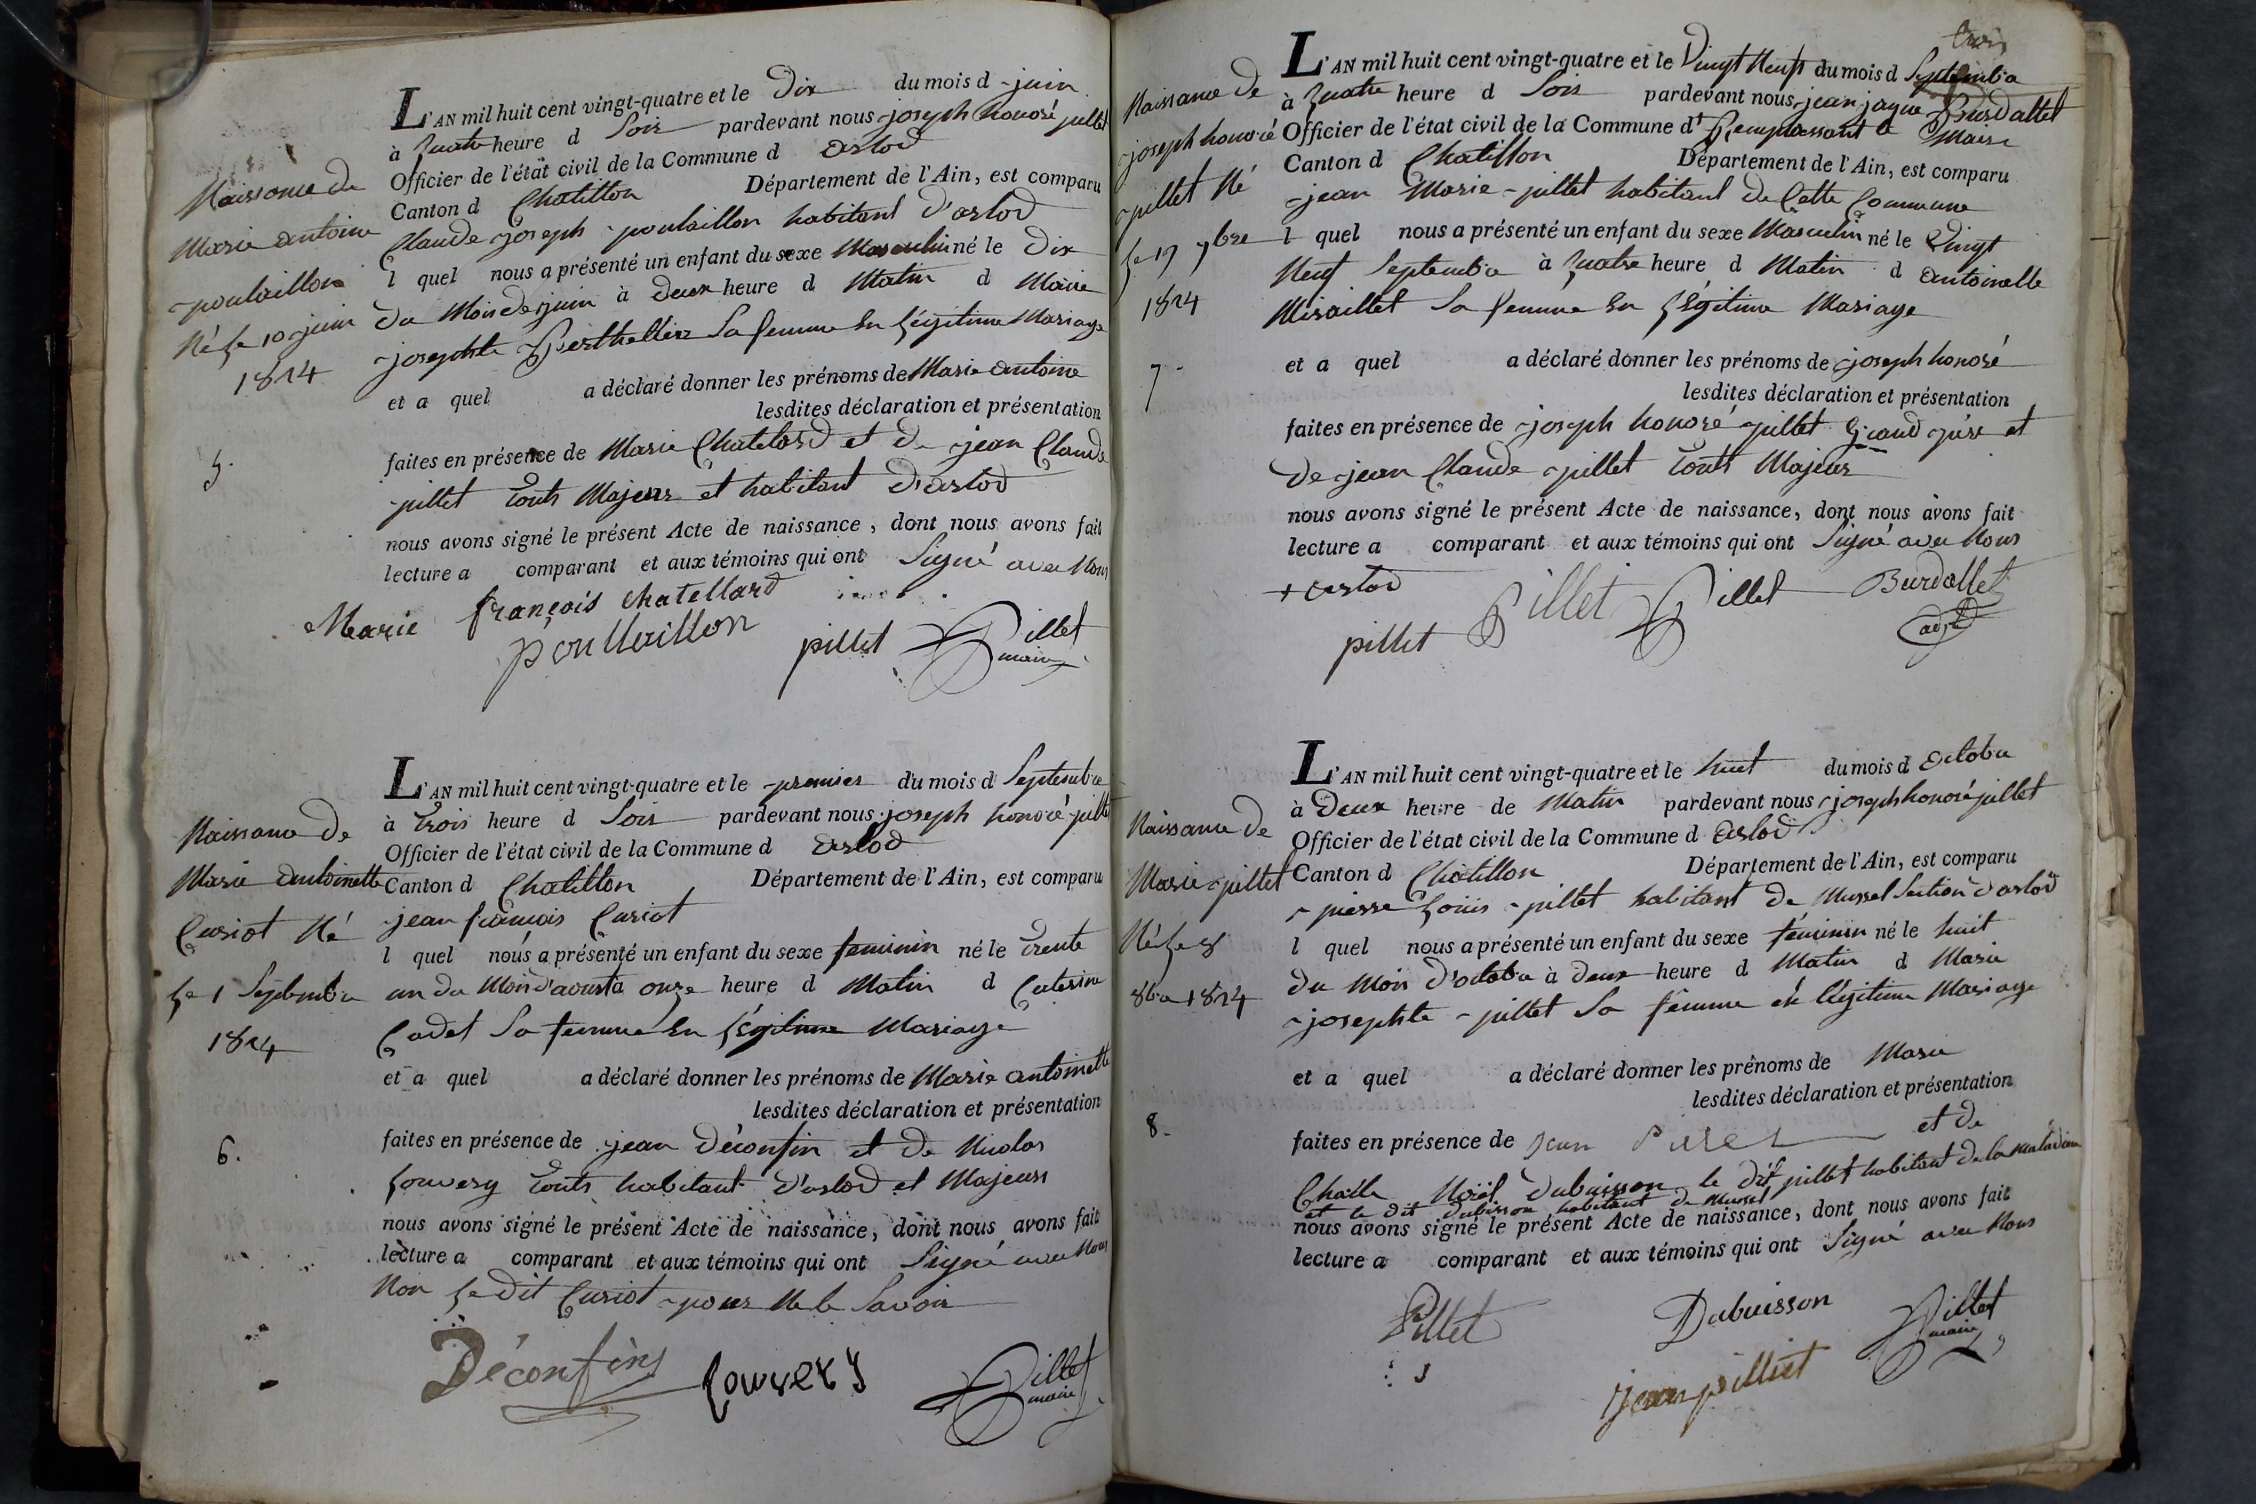 Naissance de
Marie antoine
poulaillon
Né Le 10 juin
1824
5.
L'AN mil huit cent vingt-quatre et le Dix du mois d juin
à quatre heure d Soir pardevant nous joseph honoré pillet
Officier de l'état civil de la Commune d arlod
Canton d Chatillon Département de l'Ain, est comparu
Claude joseph poulaillon habitant d'arlod
l quel nous a présenté un enfant du sexe Masculin né le Dix
du Mois de juin à deux heure d Matin d Marie
josephte Berthellier Sa femme En Légitime Mariage
et a quel a déclaré donner les prénoms de Marie antoine
lesdites déclaration et présentation
faites en présence de Marie Chatelard et de jean Claude
pillet touts Majeurs et habitant d'arlod
nous avons signé le présent Acte de naissance, dont nous avons fait
lecture a comparant et aux témoins qui ont Signé avec Nous
Marie françois chatellard
poullaillon pillet Pillet
maire
Naissance de
Marie antoinette
Curiot Né
Le 1 Septembre
1824
6.
L'AN mil huit cent vingt-quatre et le premier du mois d Septembre
à trois heure d Soir pardevant nous joseph honoré pillet
Officier de l'état civil de la Commune d arlod
Canton d Chatillon Département de l'Ain, est comparu
jean françois Curiot
l quel nous a présenté un enfant du sexe feminin né le trente
un du Mois d'aoust à onze heure d Matin d Caterine
Cadet Sa femme En Légitime Mariage
et a quel a déclaré donner les prénoms de Marie antoinette
lesdites déclaration et présentation
faites en présence de jean Déconfin et de Nicolas
Louvery touts habitant d'arlod et Majeurs
nous avons signé le présent Acte de naissance, dont nous avons fait
lecture a comparant et aux témoins qui ont Signé avec Nous
Non Le Dit Curiot pour Ne le Savoir
Déconfins Louvery Pillet
maire
trois
Naissance de
joseph honoré
pillet Né
Le 29 7bre
1824
7.
L'AN mil huit cent vingt-quatre et le Vingt Neuf du mois d Septembre
à quatre heure d Soir pardevant nous jean jaque Burdallet
Officier de l'état civil de la Commune d+ Remplassant le Maire
Canton d Chatillon Département de l'Ain, est comparu
jean Marie pillet habitant de Cette Commune
l quel nous a présenté un enfant du sexe Masculin né le Vingt
Neuf Septembre à quatre heure d Matin d antoinette
Miraillet Sa femme En Légitime Mariage
et a quel a déclaré donner les prénoms de joseph honoré
lesdites déclaration et présentation
faites en présence de joseph honoré pillet Grand père et
de jean Claude pillet touts Majeur
nous avons signé le présent Acte de naissance, dont nous avons fait
lecture a comparant et aux témoins qui ont Signé avec Nous
+ arlod Pillet Pillet Burdallet
pillet adjt
Naissance de
Marie pillet
Né Le 8
8bre 1824
8.
L'AN mil huit cent vingt-quatre et le huit du mois d octobre
à Deux heure de Matin pardevant nous joseph honoré pillet
Officier de l'état civil de la Commune d arlod
Canton d Chatillon Département de l'Ain, est comparu
pierre Louis pillet habitant de Mussel Section d'arlod
l quel nous a présenté un enfant du sexe féminin né le huit
du Mois d'octobre à deux heure d Matin d Marie
josephte pillet Sa femme en légitime Mariage
et a quel a déclaré donner les prénoms de Marie
lesdites déclaration et présentation
faites en présence de Jean Pillet et de
Charle Noël Dubuisson le dit pillet habitant de la maladière
et le dit Dubuisson habitant de Mussel
nous avons signé le présent Acte de naissance, dont nous avons fait
lecture a comparant et aux témoins qui ont Signé avec Nous
Pillet Dubuisson Pillet
maire
jean pilliet